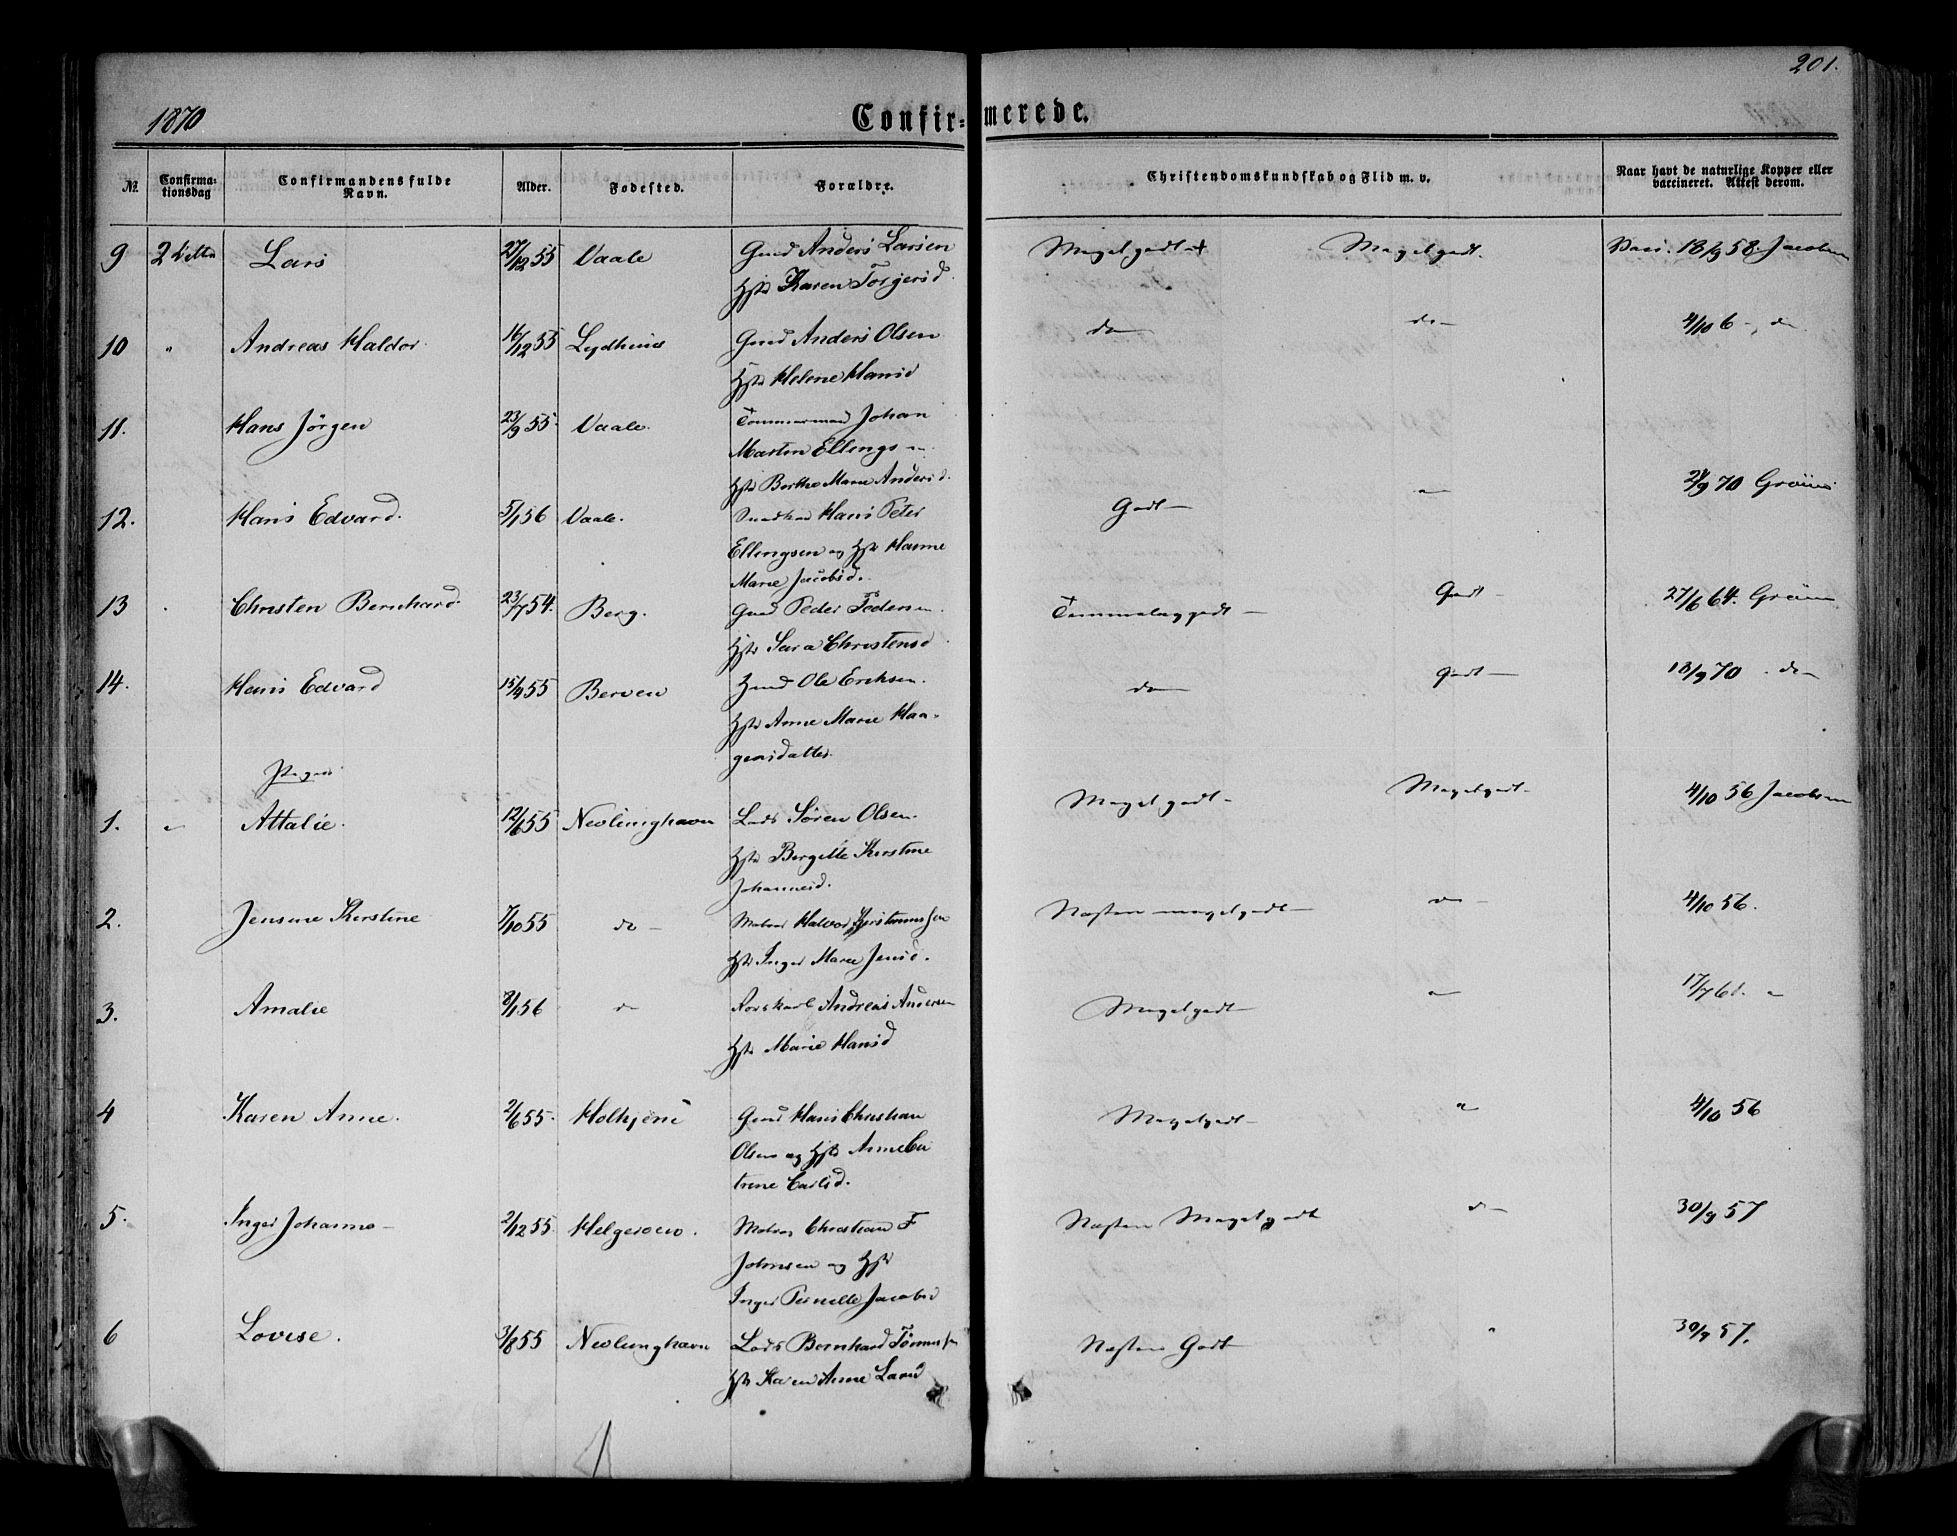 201.
1870
Confir- merede.
№ Confirmationsdag Confirmandens fulde Navn. Alder. Fødested. Forældre. Christendomskundskab og Flid m. v. Naar havt de naturlige Kopper eller vaccineret. Attest derom.
9 2 Lars 27/12 55 Vaale Gmd Anders Larsen Meget godt + Meget godt. 18/9 58. Jacobsen
Hst Karen Torgersd.
10 " Andreas Haldor. 16/12 55 Gmd Anders Olsen do do 4/10 6 - do
Hst Helene Hansd
11. Hans Jörgen 23/9 55. Vaale. Tømmermand Johan
Martin Ellings
Hst Berthe Marie Andersd.
12. Hans Edvard. 5/1 56 Vaale. Hans Peter Godt - 70
Ellingsen og Hst Hanne
Marie Jacobsd.
13 Christen Bernhard. 23/7 54. Berg. Gmd Peder Pedersen. Godt - 27/6 64.
Hst Sara Christensd
14. Hans Edvard 15/9 55 Berven Hmd Ole Eriksen. do godt - 13/9 70 - do
Hst Anne Marie Haa-
gensdatter.
Piger
1. Attalie. 12/6 55 Nevlunghavn Lods Sören Olsen. Meget godt - Meget godt - 4/10 56 Jacobsen
Hst Bergitte Kirstine
Johannesd.
2. Jensine Kirstine 7/10 55 do - Matros Halvor Kristiansen Næsten meget godt - do - 4/10 56.
Hst Inger Marie Jensd.
3. Amalie 8/1 56 do Andreas Andersen Meget godt - " 17/7 61. "
Hst Marie Hansd
4 Karen Anne. 2/6 55. Gmd Hans Christian Meget godt - " 4/10 56
Olsen og Hst Anne Ca
trine Carlsd.
5. Inger Johanne - 2/12 55. Helgeroen. Matros Christian F Næsten Meget godt do 30/9 57
Johnsen og Hst
Inger Pernelle Jacobsd
6 Lovise. 3/8 55 Nevlunghavn Lods Bernhard Næsten Godt " 30/9 57.
Hst Karen Anne Larsd